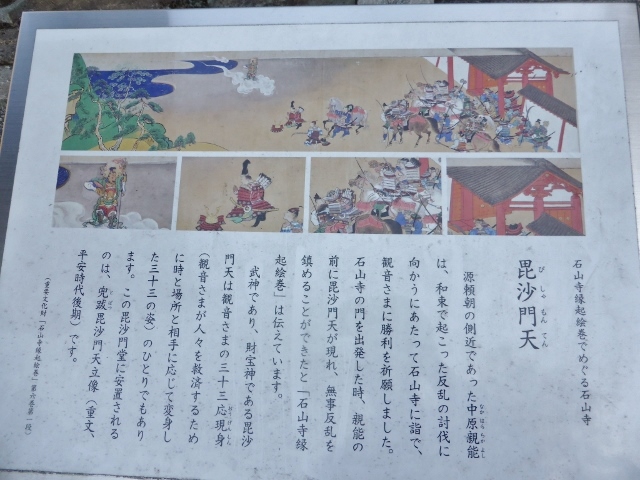 石山寺縁起絵巻でめぐる石山寺
毘沙門天
びしゃもんてん
源頼朝の側近であった中原親能
なかはらちかよし
は、和束で起こった反乱の討伐に
向かうにあたって石山寺に詣で、
観音さまに勝利を祈願しました。
石山寺の門を出発した時、親能の
前に毘沙門天が現れ、無事反乱を
鎮めることができたと「石山寺縁
起絵巻」は伝えています。
武神であり、財宝神である毘沙
門天は観音さまの三十三応現身
おうげんしん
(観音さまが人々を救済するため
に時と場所と相手に応じて変身し
た三十三の姿)のひとりでもあり
ます。この毘沙門堂に安置される
のは、兜跋毘沙門天立像(重文、
平安時代後期)です。
(重要文化財「石山寺縁起絵巻」第六巻第一段)